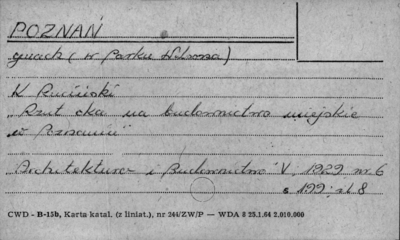 POZNAŃ
gmach (w Parku Wilsona)
K Ruciński
"Rzut oka na budownictwo miejskie
w Poznaniu"
Architektura i Budownictwo V. 1929 nr 6
s 199: il 8
CWD - B-15b, Karta katal. (z liniat.), nr 244/ZW/P — WDA 8 25.1.64 2.010.000